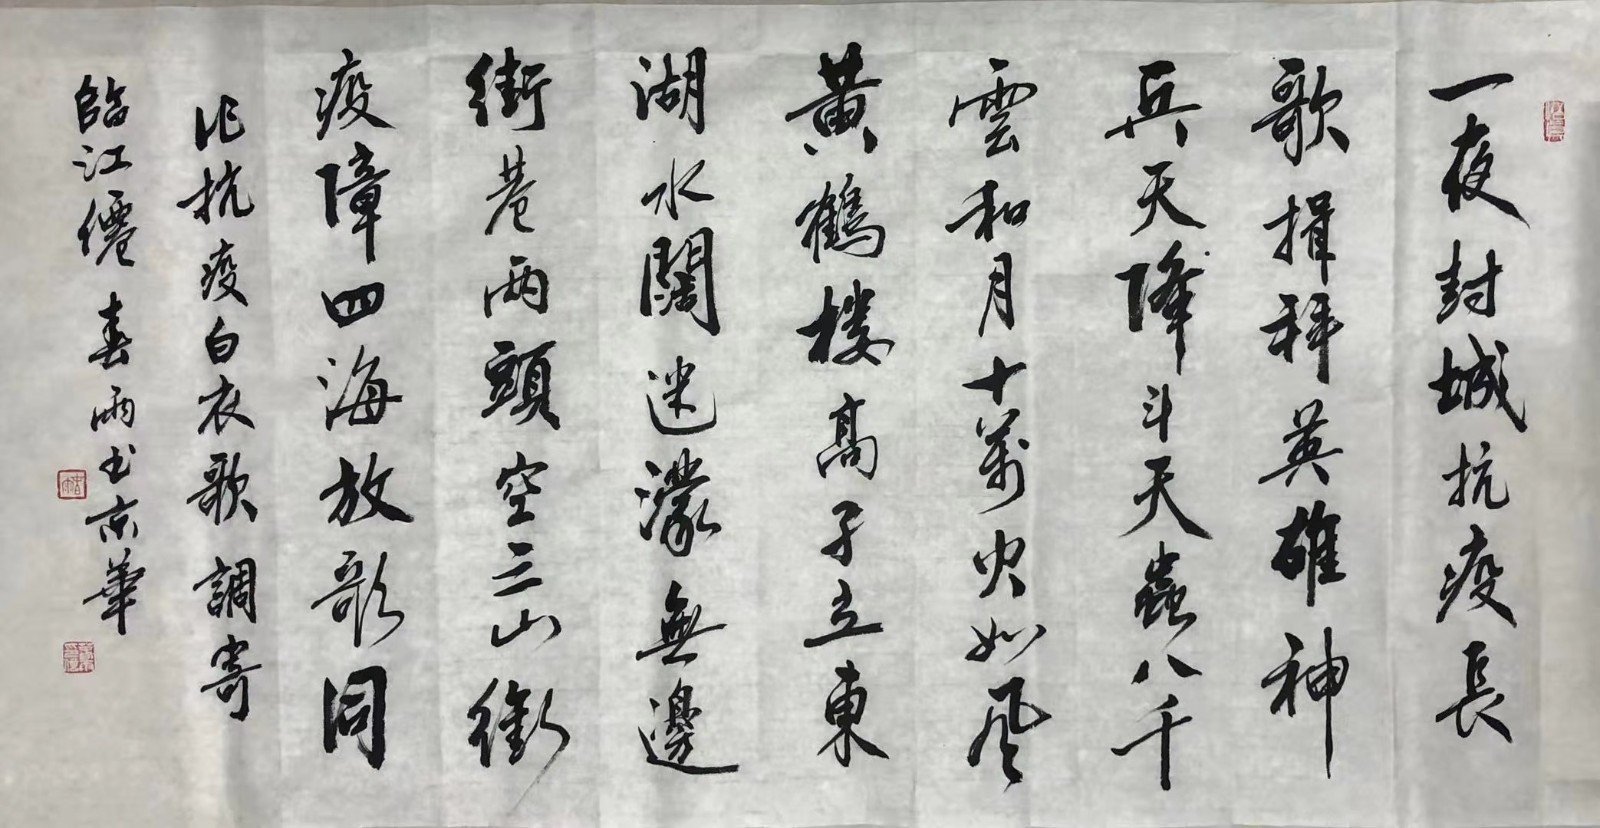 一夜封城抗疫長
歌揖拜英雄神
兵天降斗天蟲八千
雲和月十萬火如風
黃鶴楼高子立東
湖水闊迷濛無邊
街巷兩頭空三山銜
疫障四海放歌同
作抗疫白衣歌調寄
臨江僊春雨书京華